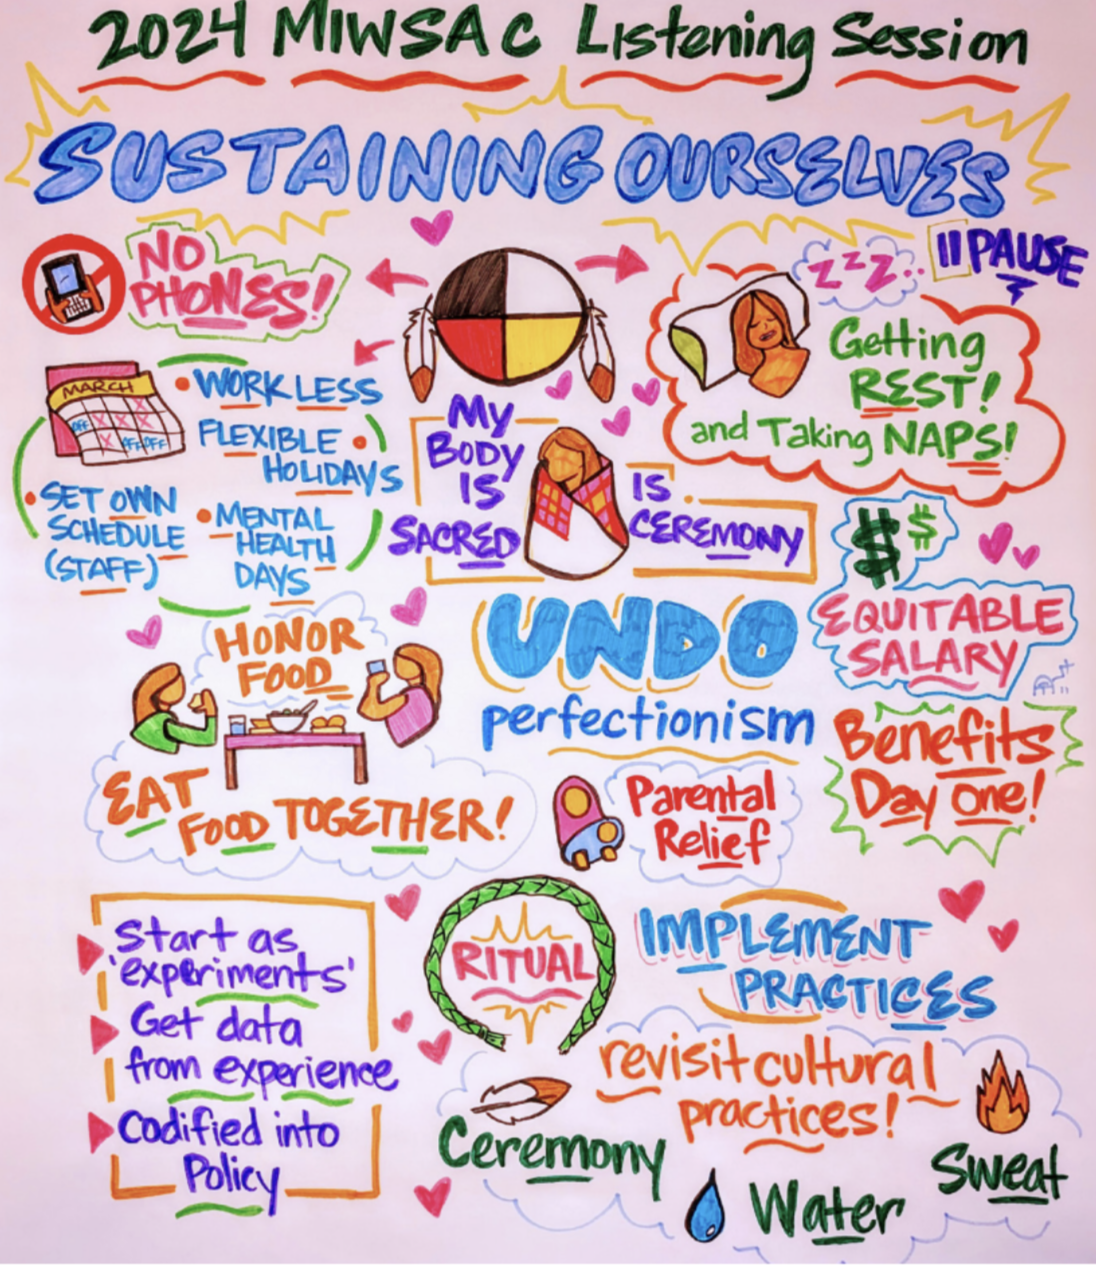 2024 MIWSAC Listening Session
SUSTAINING OURSELVES
NO
PHONES!
zzz..
PAUSE
Getting
REST!
and Taking NAPS!
MARCH
OFF
OFF OFF
• WORK LESS
FLEXIBLE •
HOLIDAYS
• SET OWN
SCHEDULE
(STAFF)
• MENTAL
HEALTH
DAYS
MY
BODY
IS
SACRED
IS
CEREMONY
$ $
EQUITABLE
SALARY
HONOR
FOOD
EAT
FOOD TOGETHER!
UNDO
perfectionism
Benefits
Day one!
Parental
Relief
Start as
'experiments'
Get data
from experience
Codified into
Policy
RITUAL
IMPLEMENT
PRACTICES
revisit cultural
practices!
Ceremony
Water
Sweat